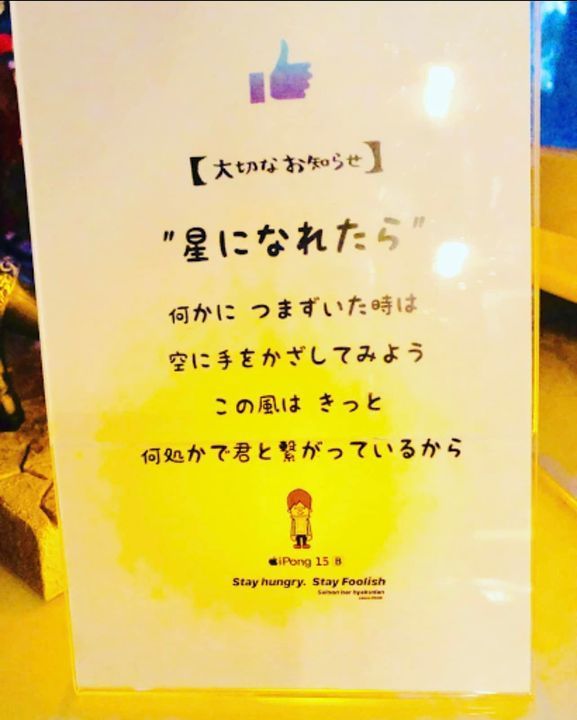 【大切なお知らせ】
"星になれたら"
何かに つまずいた時は
空に手をかざしてみよう
この風は きっと
何処かで君と繋がっているから
iPong 15 B
Stay hungry. Stay Foolish